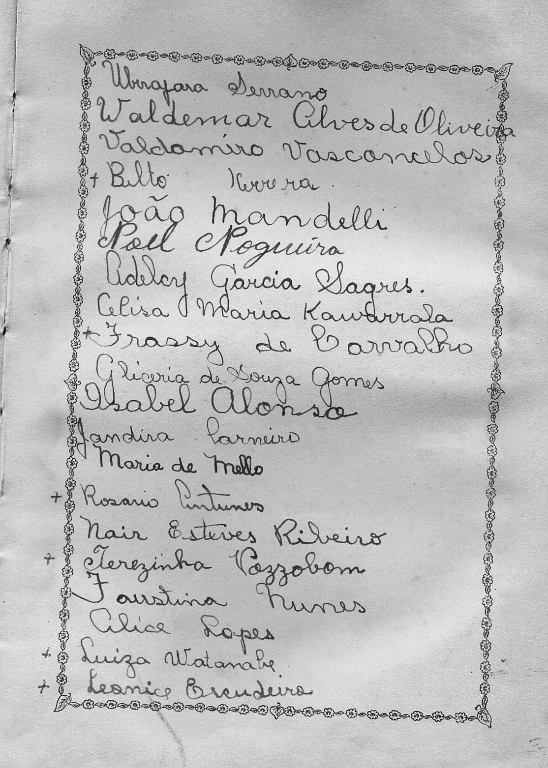 Ubirajara Serrano
Waldemar Alves de Oliveira
Valdomiro Vasconcelos
+ Belto Herrera
João Mandelli
Noel Nogueira
Adelcy Garcia Sagres.
Celisa Maria Kawarrala
+ Frassy de Carvalho
Gliceria de Souza Gomes
Isabel Alonso
Jandira Carneiro
Maria de Mello
+ Rosario Antunes
Nair Esteves Ribeiro
+ Terezinha Pozzobom
Faustina Nunes
Alice Lopes
+ Luiza Watanabe
+ Leonice Escudeiro